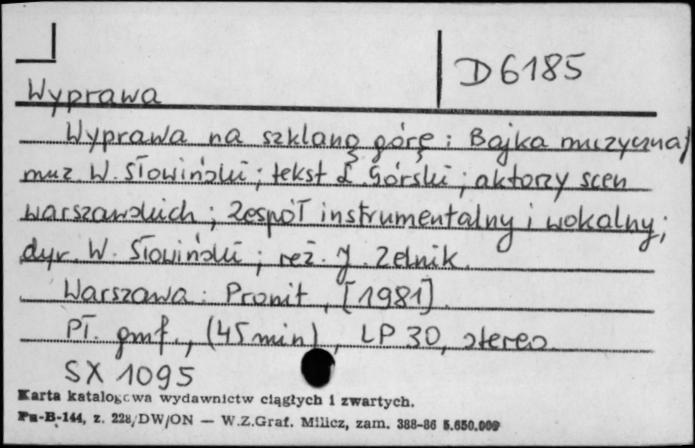 D 6185
Wyprawa
Wyprawa na szklaną górę : Bajka muzyczna /
muz. W. Słowiński ; tekst L. Górski ; aktorzy scen
warszawskich ; Zespół instrumentalny i wokalny ;
dyr. W. Słowiński ; reż. J. Zelnik.
Warszawa : Pronit, [1981].
Pł. gmf., (45 min), LP 30, stereo.
SX 1095
Karta katalogowa wydawnictw ciągłych i zwartych.
Pu-B-144, z. 228/DW/ON — W.Z.Graf. Milicz, zam. 388-86 5.650.000